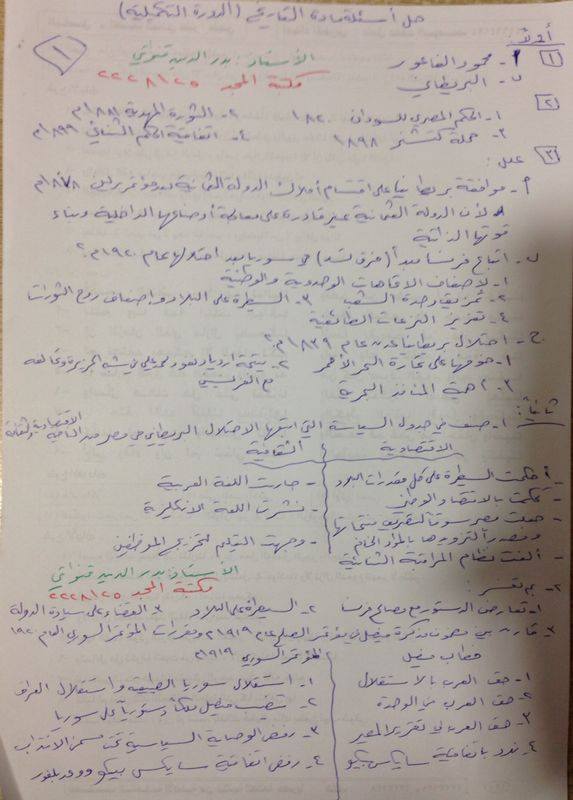 حل أسئلة مادة التاريخ (الدورة التكميلية)
١
أولاً:
١ أ- محمود الفاعور
الأستاذ: بدر الدين قنواتي
ب- البريطاني
مكتبة المجد ٢٢٢٨١٢٥
٢ ١- الحكم المصري للسودان ١٨٢٠ ٢- الثورة المهدية ١٨٨١م
٣- حملة كتشنر ١٨٩٨ ٤- اتفاقية الحكم الثنائي ١٨٩٩م
٣ علل:
أ- موافقة بريطانيا على اقتسام أملاك الدولة العثمانية بعد مؤتمر برلين ١٨٧٨م
لأن الدولة العثمانية غير قادرة على معالجة أوضاعها الداخلية وبناء
قوتها الذاتية
ب- اتباع فرنسا مبدأ (فرق تسد) في سوريا بعد احتلالها عام ١٩٢٠م؟
١- لإضعاف الاتجاهات الوحدوية والوطنية
٢- تمزيق وحدة الشعب ٣- السيطرة على البلاد وإضعاف روح الثورات
٤- تعزيز النزعات الطائفية
ج- احتلال بريطانيا عدن عام ١٨٣٩م؟
١- خوفها على تجارة البحر الأحمر ٢- نتيجة ازدياد نفوذ محمد علي في شبه الجزيرة وتحالفه
مع الفرنسيين
٣- أهمية المنافذ البحرية
ثانياً:
١- صنف في جدول السياسة التي اتبعها الاحتلال البريطاني في مصر من الناحية الاقتصادية والثقافية
الاقتصادية الثقافية
- أحكمت السيطرة على كل مقدرات البلاد - حاربت اللغة العربية
- تحكمت بالاقتصاد الوطني - نشرت اللغة الانكليزية
- جعلت مصر سوقاً لتصريف منتجاتها - وجهت التعليم لتخريج الموظفين
ومصدراً لتزويدها بالمواد الخام
- ألغت نظام المراقبة الثنائية
الأستاذ: بدر الدين قنواتي
مكتبة المجد ٢٢٢٨١٢٥
٢- بم تفسر:
١- تعارض الدستور مع مصالح فرنسا ٢- السيطرة على البلاد ٣- القضاء على سيادة الدولة
٣- قارن بين مضمون مذكرة فيصل في مؤتمر الصلح عام ١٩١٩ ومقررات المؤتمر السوري العام ١٩٢٠
خطاب فيصل المؤتمر السوري ١٩١٩م
١- حق العرب بالاستقلال ١- استقلال سوريا الطبيعية واستقلال العراق
٢- حق العرب في الوحدة ٢- تنصيب فيصل ملكاً دستورياً على سوريا
٣- حق العرب في تقرير المصير ٣- رفض الوصاية السياسية تحت مسمى الانتداب
٤- ندد باتفاقية سايكس بيكو ٤- رفض اتفاقية سايكس بيكو ووعد بلفور